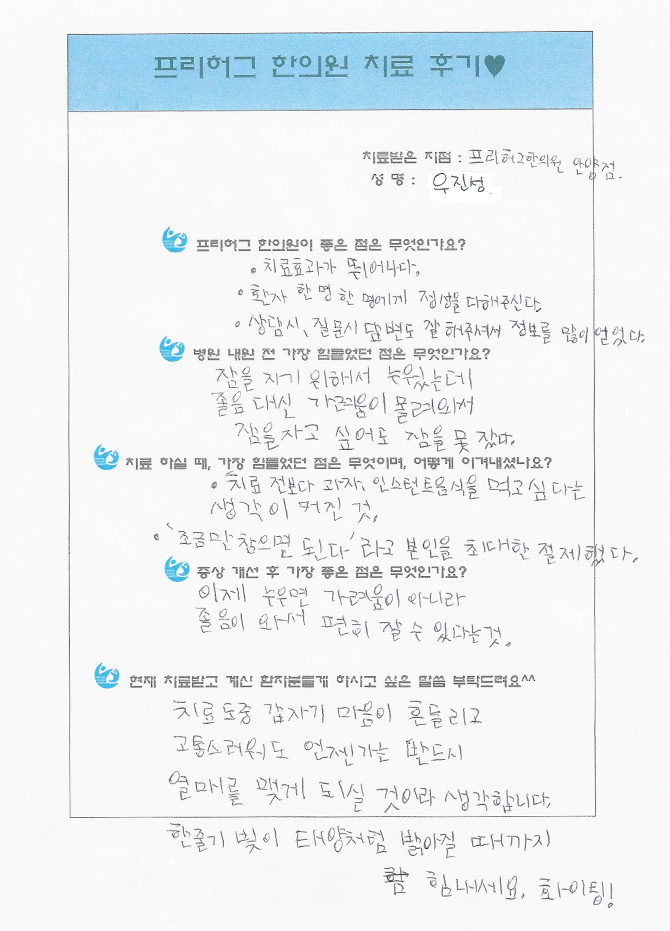 프리허그 한의원 치료 후기♥
치료받은 지점 : 프리허그한의원 안양점.
성 명 : 우진성.
프리허그 한의원이 좋은 점은 무엇인가요?
• 치료효과가 뛰어나다.
• 환자 한 명 한 명에게 정성을 다해주신다.
• 상담시, 질문시 답변도 잘 해주셔서 정보를 많이 얻었다.
병원 내원 전 가장 힘들었던 점은 무엇인가요?
잠을 자기 위해서 누웠는데
졸음 대신 가려움이 몰려와서
잠을 자고 싶어도 잠을 못 잤다.
치료 하실 때, 가장 힘들었던 점은 무엇이며, 어떻게 이겨내셨나요?
• 치료 전보다 과자, 인스턴트음식을 먹고 싶다는
생각이 커진 것.
• '조금만 참으면 된다' 라고 본인을 최대한 절제했다.
증상 개선 후 가장 좋은 점은 무엇인가요?
이제 누우면 가려움이 아니라
졸음이 와서 편히 잘 수 있다는 것.
현재 치료받고 계신 환자분들게 하시고 싶은 말씀 부탁드려요^^
치료도중 갑자기 마음이 흔들리고
고통스러워도 언젠가는 반드시
열매를 맺게 되실 것이라 생각합니다.
한줄기 빛이 태양처럼 밝아질 때까지
힘내세요. 화이팅!